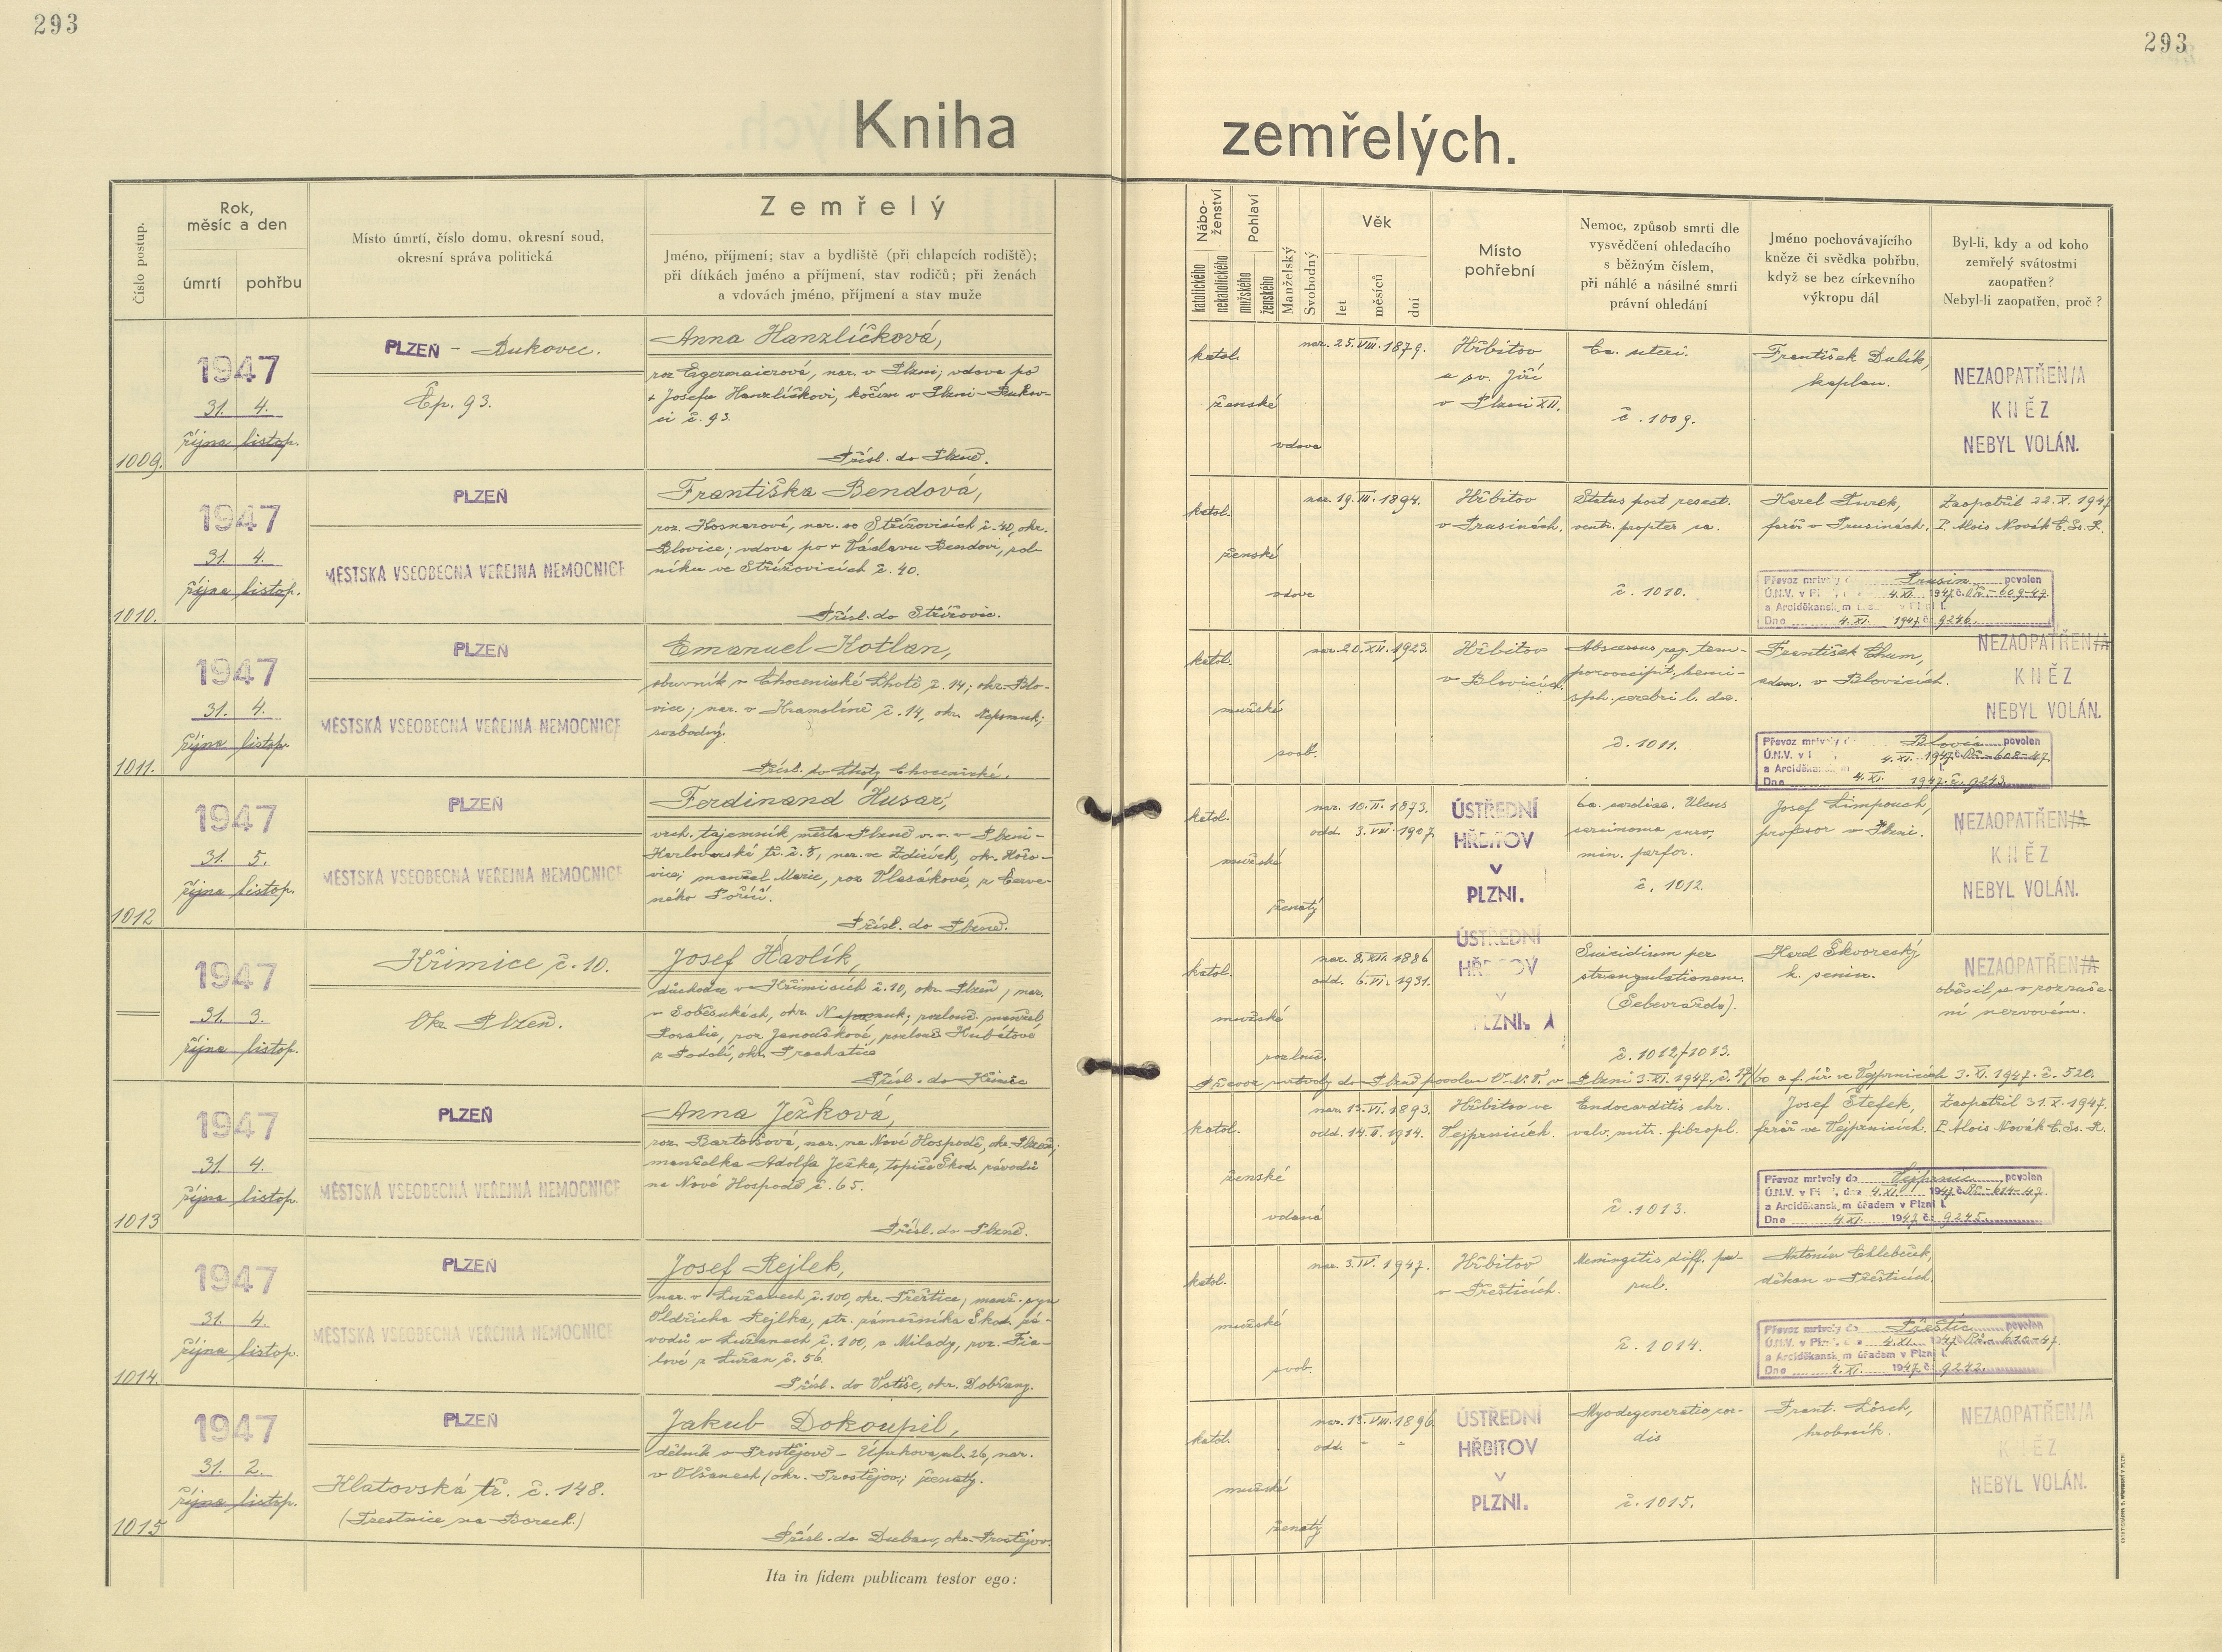 293
293
Kniha zemřelých.
Číslo postup.
Rok, měsíc a den
úmrtí
pohřbu
Místo úmrtí, číslo domu, okresní soud,
okresní správa politická
Zemřelý
Jméno, příjmení; stav a bydliště (při chlapcích rodiště);
při dítkách jméno a příjmení, stav rodičů; při ženách
a vdovách jméno, příjmení a stav muže
Nábo-
ženství
katolického
nekatolického
Pohlaví
mužského
ženského
Manželský
Svobodný
Věk
let
měsíců
dní
Místo
pohřební
Nemoc, způsob smrti dle
vysvědčení ohledacího
s běžným číslem,
při náhlé a násilné smrti
právní ohledání
Jméno pochovávajícího
kněze či svědka pohřbu,
když se bez církevního
výkropu dál
Byl-li, kdy a od koho
zemřelý svátostmi
zaopatřen?
Nebyl-li zaopatřen, proč?
1009.
1947
31. 4.
října listop.
PLZEŇ - Bukovec.
Čp. 93.
Anna Hanzlíčková,
roz. Egermaierová, nar. v Plzni; vdova po
+ Josefu Hanzlíčkovi, kočím v Plzni-Bukov-
ci č. 93.
Přísl. do Plzně.
katol.
ženské
vdova
nar. 25. VIII. 1879.
Hřbitov
u sv. Jiří
v Plzni XII.
Ca. uteri.
č. 1009.
František Dulík,
kaplan.
NEZAOPATŘEN/A
KNĚZ
NEBYL VOLÁN.
1010.
1947
31. 4.
října listop.
PLZEŇ
MĚSTSKÁ VŠEOBECNÁ VEŘEJNÁ NEMOCNICE
Františka Bendová,
roz. Hosnarová, nar. ve Střížovicích č. 40, okr.
Blovice; vdova po + Václavu Bendovi, rol-
níku ve Střížovicích č. 40.
Přísl. do Střížovic.
katol.
ženské
vdova
nar. 19. III. 1894.
Hřbitov
v Prusinách.
Status post resect.
ventr. propter ca.
č. 1010.
Karel Turek,
farář v Prusinách.
Zaopatřil 22. X. 1947
P. Alois Novák C. Ss. R.
Převoz mrtvoly do Prusin povolen
Ú.N.V. v Pl 4. XI. 1947 č. 609-47.
a Arciděkansk m v Plzni I.
Dne 4. XI. 1947 č. 9246.
1011.
1947
31. 4.
října listop.
PLZEŇ
MĚSTSKÁ VŠEOBECNÁ VEŘEJNÁ NEMOCNICE
Emanuel Kotlan,
obuvník v Chocenické Lhotě č. 14; okr. Blo-
vice; nar. v Kramolíně č. 14, okr. Nepomuk;
svobodný.
Přísl. do Lhoty Chocenické.
katol.
mužské
svob.
nar. 20. XII. 1923.
Hřbitov
v Blovicích.
Abscessus reg. tem-
porooccipit. hemi-
sph. cerebri l. dex.
č. 1011.
František Chum,
adm. v Blovicích.
NEZAOPATŘEN/A
KNĚZ
NEBYL VOLÁN.
Převoz mrtvoly do Blovic povolen
Ú.N.V. v 4. XI. 1947 č. 608-47.
a Arciděkansk
Dne 4. XI. 1947 č. 9243.
1012
1947
31. 5.
října listop.
PLZEŇ
MĚSTSKÁ VŠEOBECNÁ VEŘEJNÁ NEMOCNICE
Ferdinand Husar,
vrch. tajemník města Plzně v. v. v Plzni-
Karlovarská tř. č. 5, nar. ve Zdicích, okr. Hořo-
vice; manžel Marie, roz. Vlasákové, z Červe-
ného Poříčí.
Přísl. do Plzně.
katol.
mužské
ženatý
nar. 10. II. 1873.
odd. 3. VIII. 1907.
ÚSTŘEDNÍ
HŘBITOV
V
PLZNI.
Ca. cardiae. Ulcus
carcinoma curv.
min. perfor.
č. 1012.
Josef Limpouch,
profesor v Plzni.
NEZAOPATŘEN/A
KNĚZ
NEBYL VOLÁN.
1947
31. 3.
října listop.
Křimice č. 10.
Okr. Plzeň.
Josef Havlík,
důchodce v Křimicích č. 10, okr. Plzeň, nar.
v Soběsukách, okr. Nepomuk; rozlouč. manžel
Rosalie, roz. Janouškové, rozloučené Hubátové
z Podolí, okr. Prachatice
Přísl. do Křimic
katol.
mužské
rozlouč.
nar. 8. XII. 1886
odd. 6. VI. 1931.
ÚSTŘEDNÍ
HŘBITOV
V
PLZNI.
Suicidium per
strangulationem.
(Sebevražda).
č. 1012/1013.
Karel Škvorecký
k. senior.
NEZAOPATŘEN/A
oběsil se v rozruše-
ní nervovém.
Převoz mrtvoly do Plzně povolen Ú. N. V. v Plzni 3. XI. 1947. č. a f. úř. ve Vejprnicích 3. XI. 1947. č. 520.
1013
1947
31. 4.
října listop.
PLZEŇ
MĚSTSKÁ VŠEOBECNÁ VEŘEJNÁ NEMOCNICE
Anna Ježková,
roz. Bartošová, nar. na Nové Hospodě, okr. Plzeň;
manželka Adolfa Ježka, topiče Škod. závodů
na Nové Hospodě č. 65.
Přísl. do Plzně.
katol.
ženské
vdaná
nar. 15. VI. 1893.
odd. 14. II. 1914.
Hřbitov ve
Vejprnicích.
Endocarditis chr.
valv. mitr. fibropl.
č. 1013.
Josef Štefek,
farář ve Vejprnicích.
Zaopatřil 31. X. 1947.
P. Alois Novák C. Ss. R.
Převoz mrtvoly do Vejprnic povolen
Ú.N.V. v Pl , dne 4. XI. 1947 č. 614-47.
a Arciděkansk m úřadem v Plzni I.
Dne 4. XI. 1947 č. 9245.
1014.
1947
31. 4.
října listop.
PLZEŇ
MĚSTSKÁ VŠEOBECNÁ VEŘEJNÁ NEMOCNICE
Josef Rejlek,
nar. v Lužanech č. 100, okr. Přeštice; manž. syn
Oldřicha Rejlka, str. zámečníka Škod. zá-
vodů v Lužanech č. 100, a Milady, roz. Fia-
lové z Lužan č. 56.
Přísl. do Vstiše, okr. Dobřany.
katol.
mužské
svob.
nar. 3. IV. 1947.
Hřbitov
v Přešticích.
Meningitis diff. pu-
rul.
č. 1014.
Antonín Chlebeček,
děkan v Přešticích.
Převoz mrtvoly do Přeštic povolen
Ú.N.V. v Pl 4. XI. 1947 č. 610-47.
a Arciděkansk m úřadem v Plzni I.
Dne 4. XI. 1947 č. 9242.
1015
1947
31. 2.
října listop.
PLZEŇ
Klatovská tř. č. 148.
(Trestnice na Borech.)
Jakub Dokoupil,
dělník v Prostějově - Úprkova ul. 26, nar.
v Olšanech, okr. Prostějov; ženatý.
Přísl. do Duban, okr. Prostějov.
katol.
mužské
ženatý
nar. 15. VIII. 1896.
odd. - -
ÚSTŘEDNÍ
HŘBITOV
V
PLZNI.
Myodegeneratio cor-
dis
č. 1015.
Frant. Lösch,
hrobník.
NEZAOPATŘEN/A
KNĚZ
NEBYL VOLÁN.
Ita in fidem publicam testor ego: